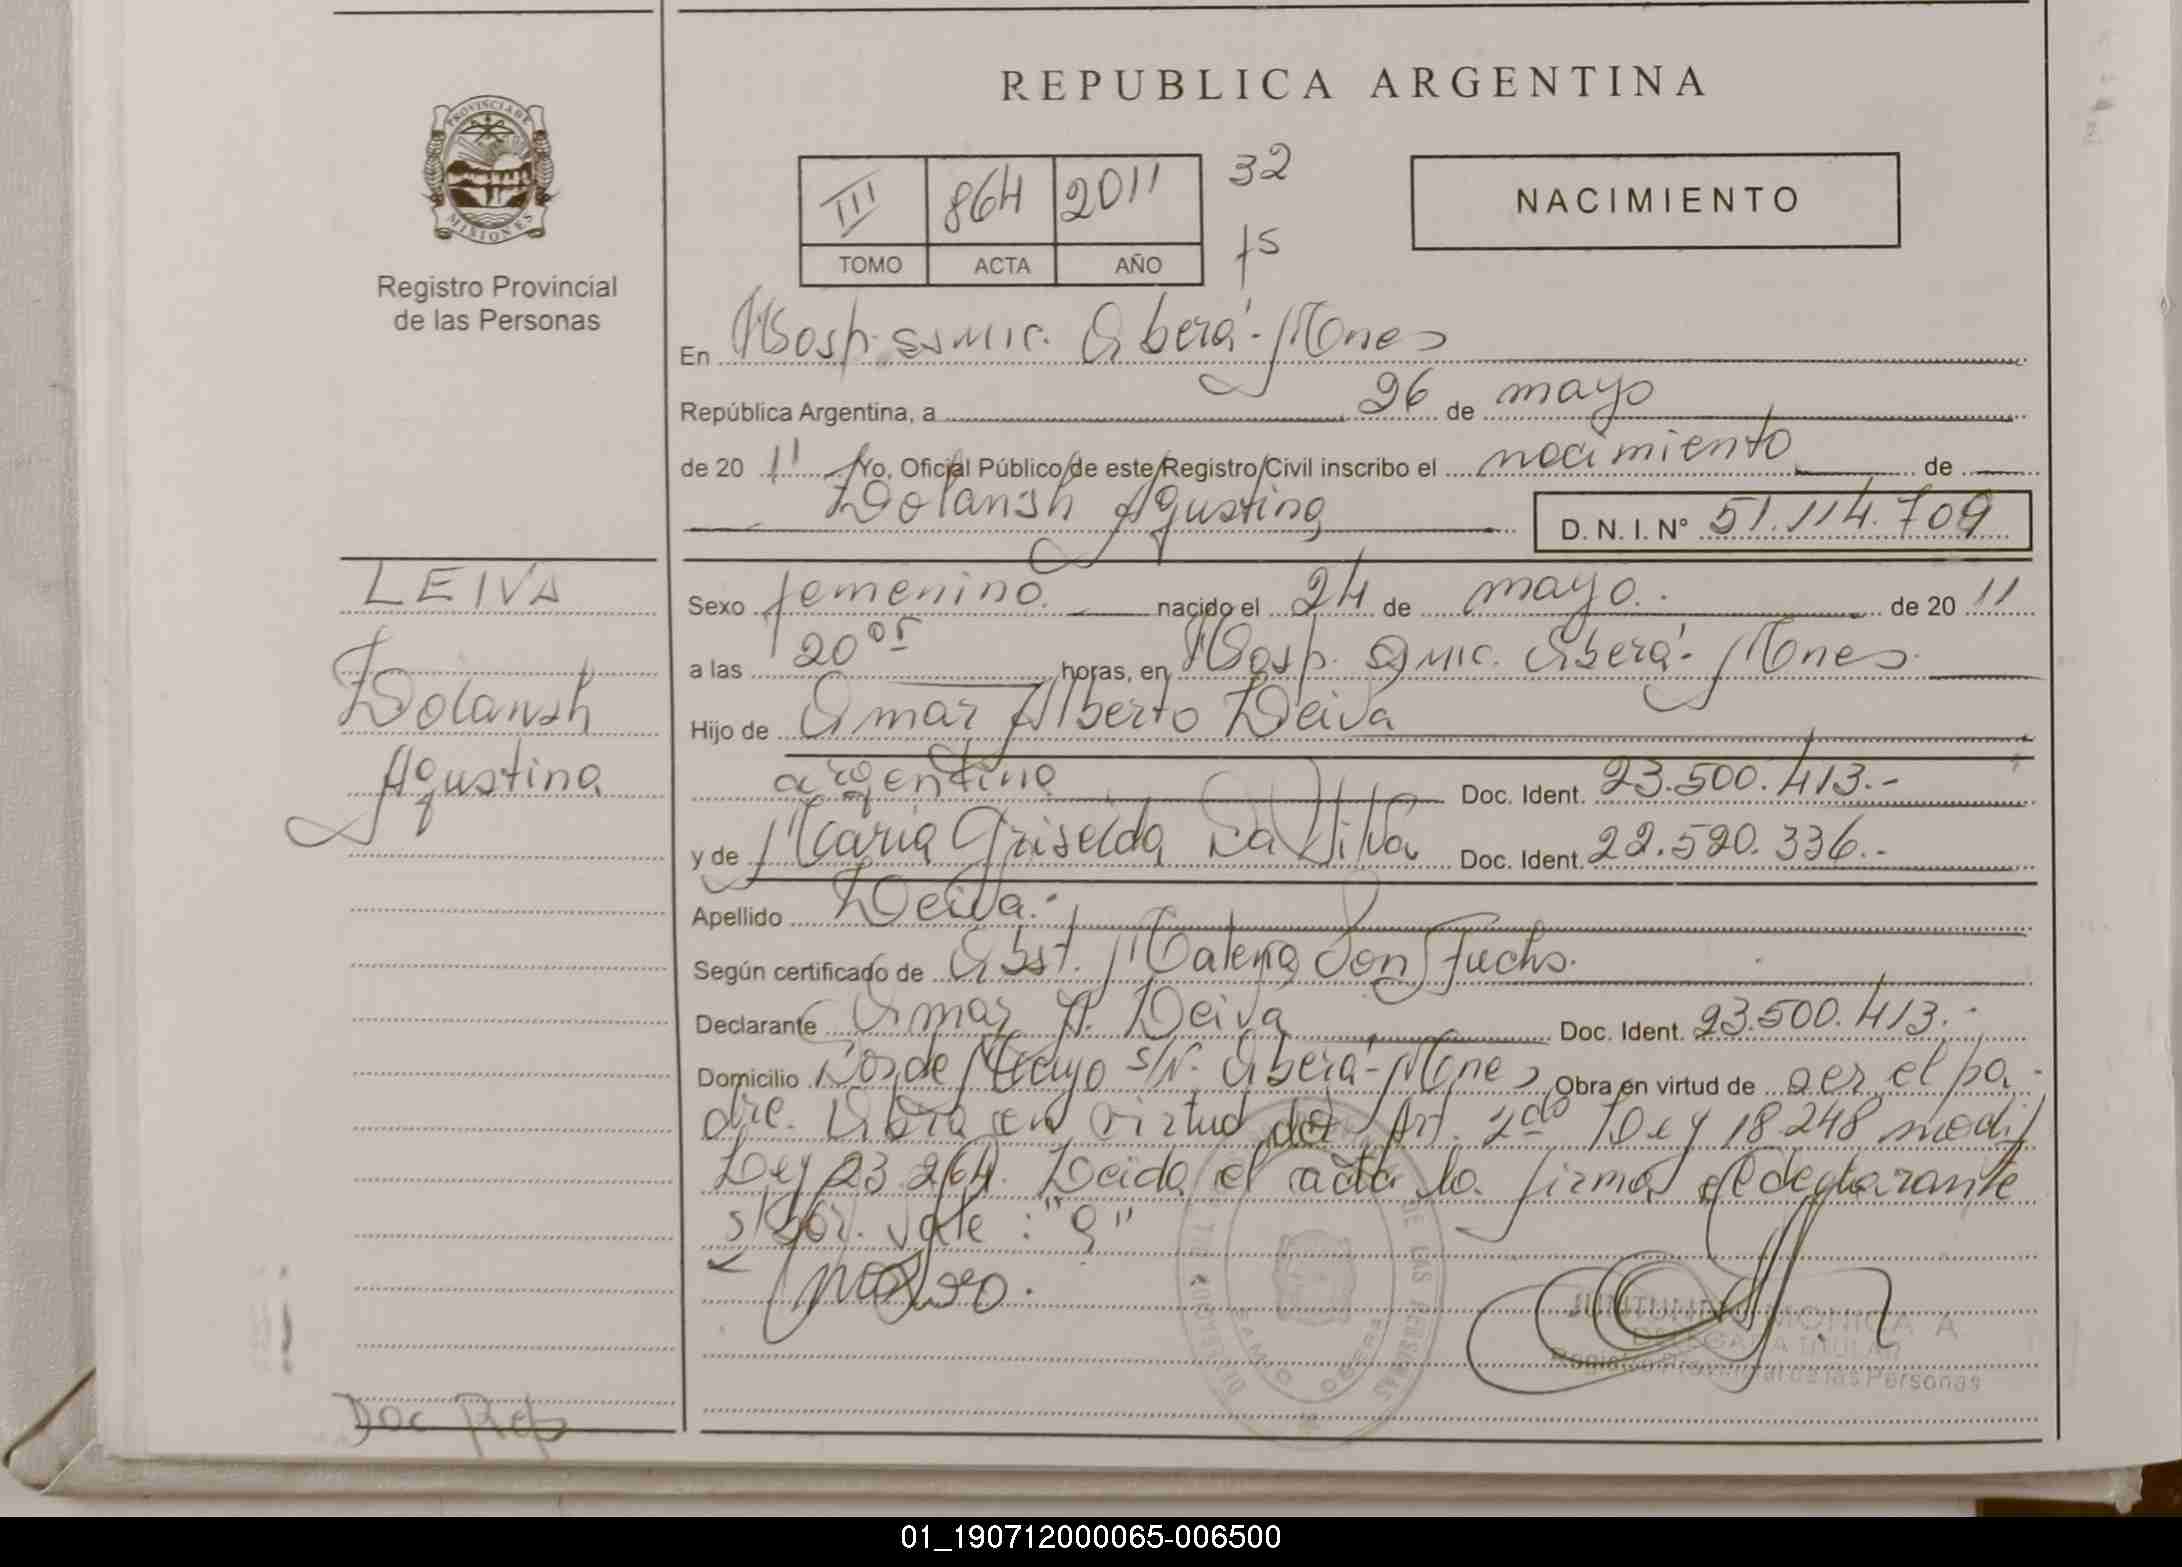 REPUBLICA ARGENTINA
PROVINCIA DE MISIONES
Registro Provincial
de las Personas
III 864 2011
TOMO ACTA AÑO
32
fs
NACIMIENTO
En Hosp. Oberá - Mnes
República Argentina, a 26 de mayo
de 20 11 Yo, Oficial Público de este Registro Civil inscribo el nacimiento de
Agustina
D. N. I. N° 51.114.709
LEIVA
Agustina
Sexo femenino nacido el 24 de mayo de 20 11
a las 20 05 horas, en Hosp. Oberá - Mnes
Hijo de Omar Alberto Leiva
argentino Doc. Ident. 23.500.413.-
y de Maria Griselda Da Silva Doc. Ident. 22.520.336.-
Apellido Leiva.-
Según certificado de Obst. Von Fuchs.
Declarante Omar A. Leiva Doc. Ident. 23.500.413.-
Domicilio de Mayo s/N. Oberá - Mnes Obra en virtud de ser el pa-
dre. Obra en virtud del Art. Ley 18.248 modif
Ley 23.264. Leida el acta la firma el declarante
Vale : "9"
Doc Rep
MONICA A
Registro Provincial de las Personas
DE LAS PERSONAS
OBERA
01_190712000065-006500